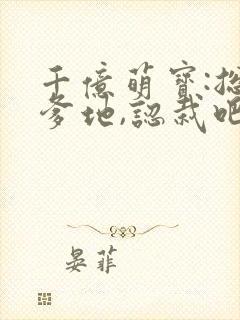 千億萌寶:
爹地,認栽吧
晏菲